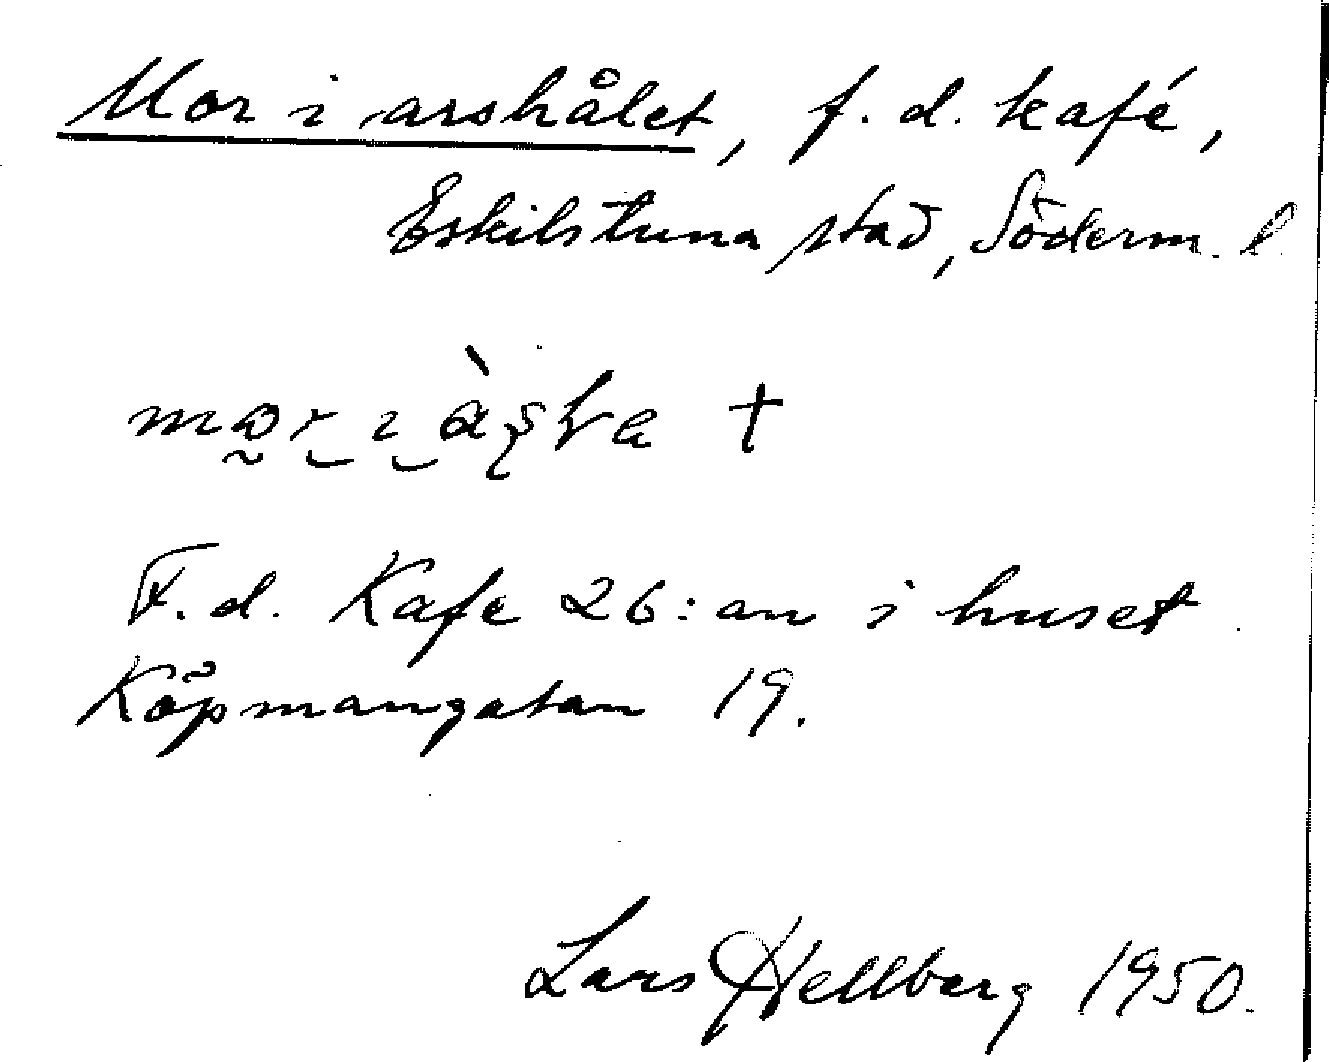 Mor i arshålet, f. d. kafé,
Eskilstuna stad, Söderm. l.
F. d. Kafe 26:an i huset
Köpmangatan 19.
Lars Hellberg 1950.